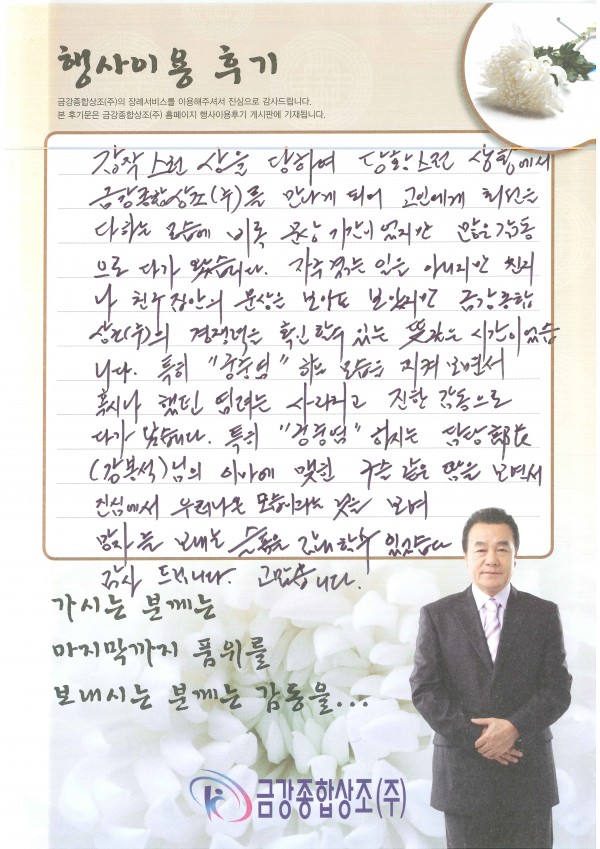 행사이용 후기
금강종합상조(주)의 장례서비스를 이용해주셔서 진심으로 감사드립니다.
본 후기문은 금강종합상조(주) 홈페이지 행사이용후기 게시판에 기재됩니다.
갑작스런 상을 당하여 당황스런 상황에서
금강종합상조(주)를 만나게 되어 고인에게 최선을
다하는 모습에 비록 문상 기간이었지만 많은 감동
으로 다가 왔습니다. 자주 겪는 일은 아니지만 친지
나 친구 집안의 문상은 보아도 보았지만 금강종합
상조(주)의 경쟁력을 확인할 수 있는 같은 시간이었습
니다. 특히 하는 모습을 지켜 보면서
혹시나 했던 염려는 사라지고 진한 감동으로
다가 왔습니다. 특히 하시는 담당 部長
(강봉석)님의 이마에 맺힌 구슬 같은 땀을 보면서
진심에서 우러나온 모습이라는 것을 보며
망자를 보내는 슬픔을 있었습니다
감사 드립니다. 고맙습니다.
가시는 분께는
마지막까지 품위를
보내시는 분께는 감동을...
금강종합상조(주)